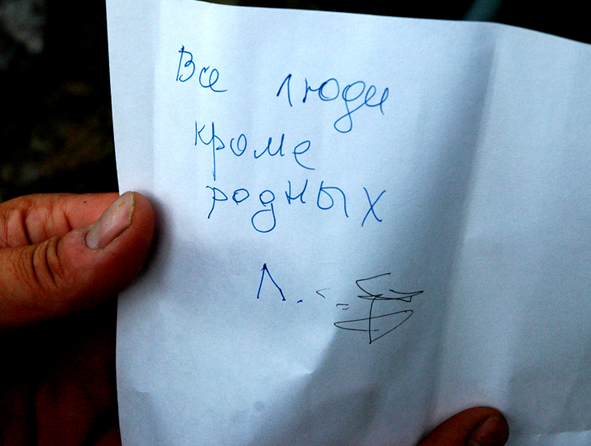 Все люди
кроме
родных
Л.